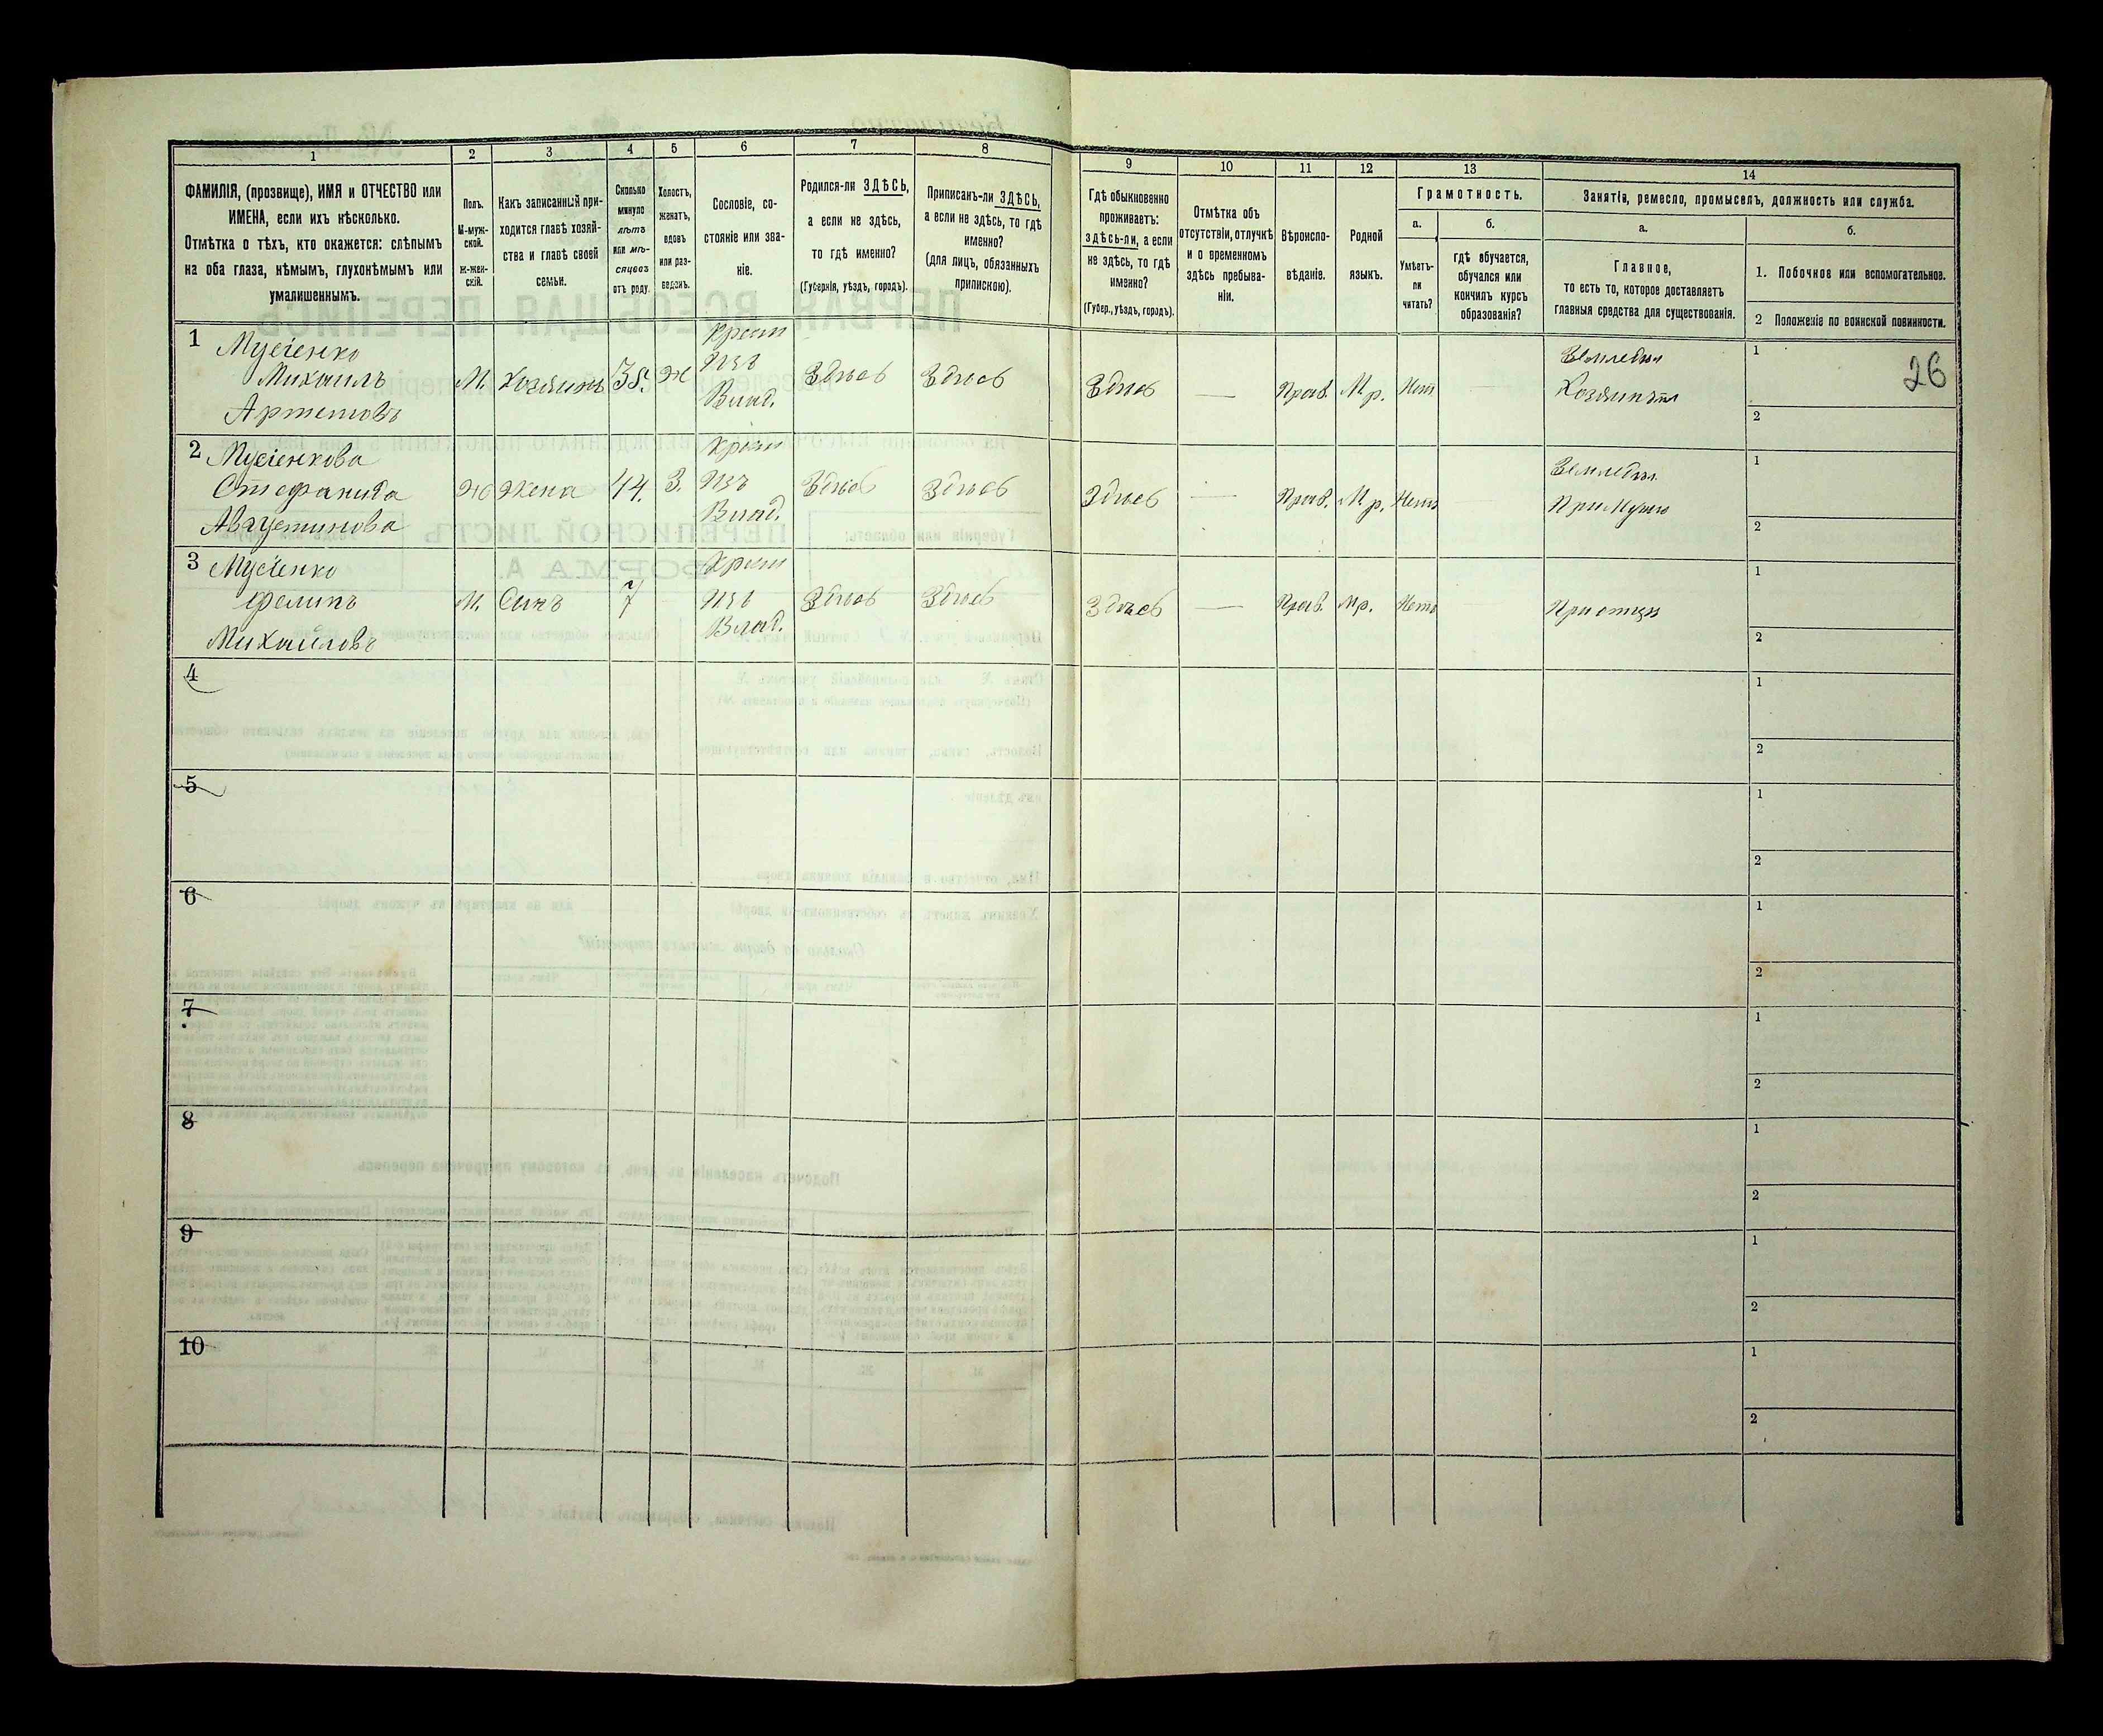 1 2 3 4 5 6 7 8 9 10 11 12 13 14
ФАМИЛІЯ, (прозвище), ИМЯ и ОТЧЕСТВО или
ИМЕНА, если ихъ нѣсколько.
Отмѣтка о тѣхъ, кто окажется: слѣпымъ
на оба глаза, нѣмымъ, глухонѣмымъ или
умалишеннымъ.
Полъ.
М-муж-
ской.
ж-жен-
скій.
Какъ записанный при-
ходится главѣ хозяй-
ства и главѣ своей
семьи.
Сколько
минуло
лѣтъ
или мѣ-
сяцевъ
отъ роду.
Холостъ,
женатъ,
вдовъ
или раз-
веденъ.
Сословіе, со-
стояніе или зва-
ніе.
Родился-ли ЗДѢСЬ,
а если не здѣсь,
то гдѣ именно?
(Губернія, уѣздъ, городъ).
Приписанъ-ли ЗДѢСЬ,
а если не здѣсь, то гдѣ
именно?
(для лицъ, обязанныхъ
припискою).
Гдѣ обыкновенно
проживаетъ:
здѣсь-ли, а если
не здѣсь, то гдѣ
именно?
(Губер., уѣздъ, городъ).
Отмѣтка объ
отсутствіи, отлучкѣ
и о временномъ
здѣсь пребыва-
ніи.
Вѣроиспо-
вѣданіе.
Родной
языкъ.
Грамотность.
а.
Умѣетъ-
ли
читать?
б.
гдѣ обучается,
обучался или
кончилъ курсъ
образованія?
Занятіе, ремесло, промыселъ, должность или служба.
а.
Главное,
то есть то, которое доставляетъ
главныя средства для существованія.
б.
1. Побочное или вспомогательное.
2 Положеніе по воинской повинности.
26
1 Мусіенко
Михаилъ
Артемовъ
М. Хозяинъ 38. Ж
Крест
Изъ
Влад.
Здѣсь Здѣсь Здѣсь — Прав. М р. Нет —
Земледѣл
Хозяинъ
1
2
2 Мусіенкова
Стефанида
Августинова
Ж Жена 44. З.
Крест
Изъ
Влад.
Здѣсь Здѣсь Здѣсь — Прав. М р. Нетъ —
Земледѣл.
При Мужѣ
1
2
3 Мусіенко
Филипъ
Михайловъ
М. Сынъ 7 —
Крест
Изъ
Влад.
Здѣсь Здѣсь Здѣсь — Прав. Мр. Нетъ —
При отцѣ
1
2
4
1
2
5
1
2
6
1
2
7
1
2
8
1
2
9
1
2
10
1
2